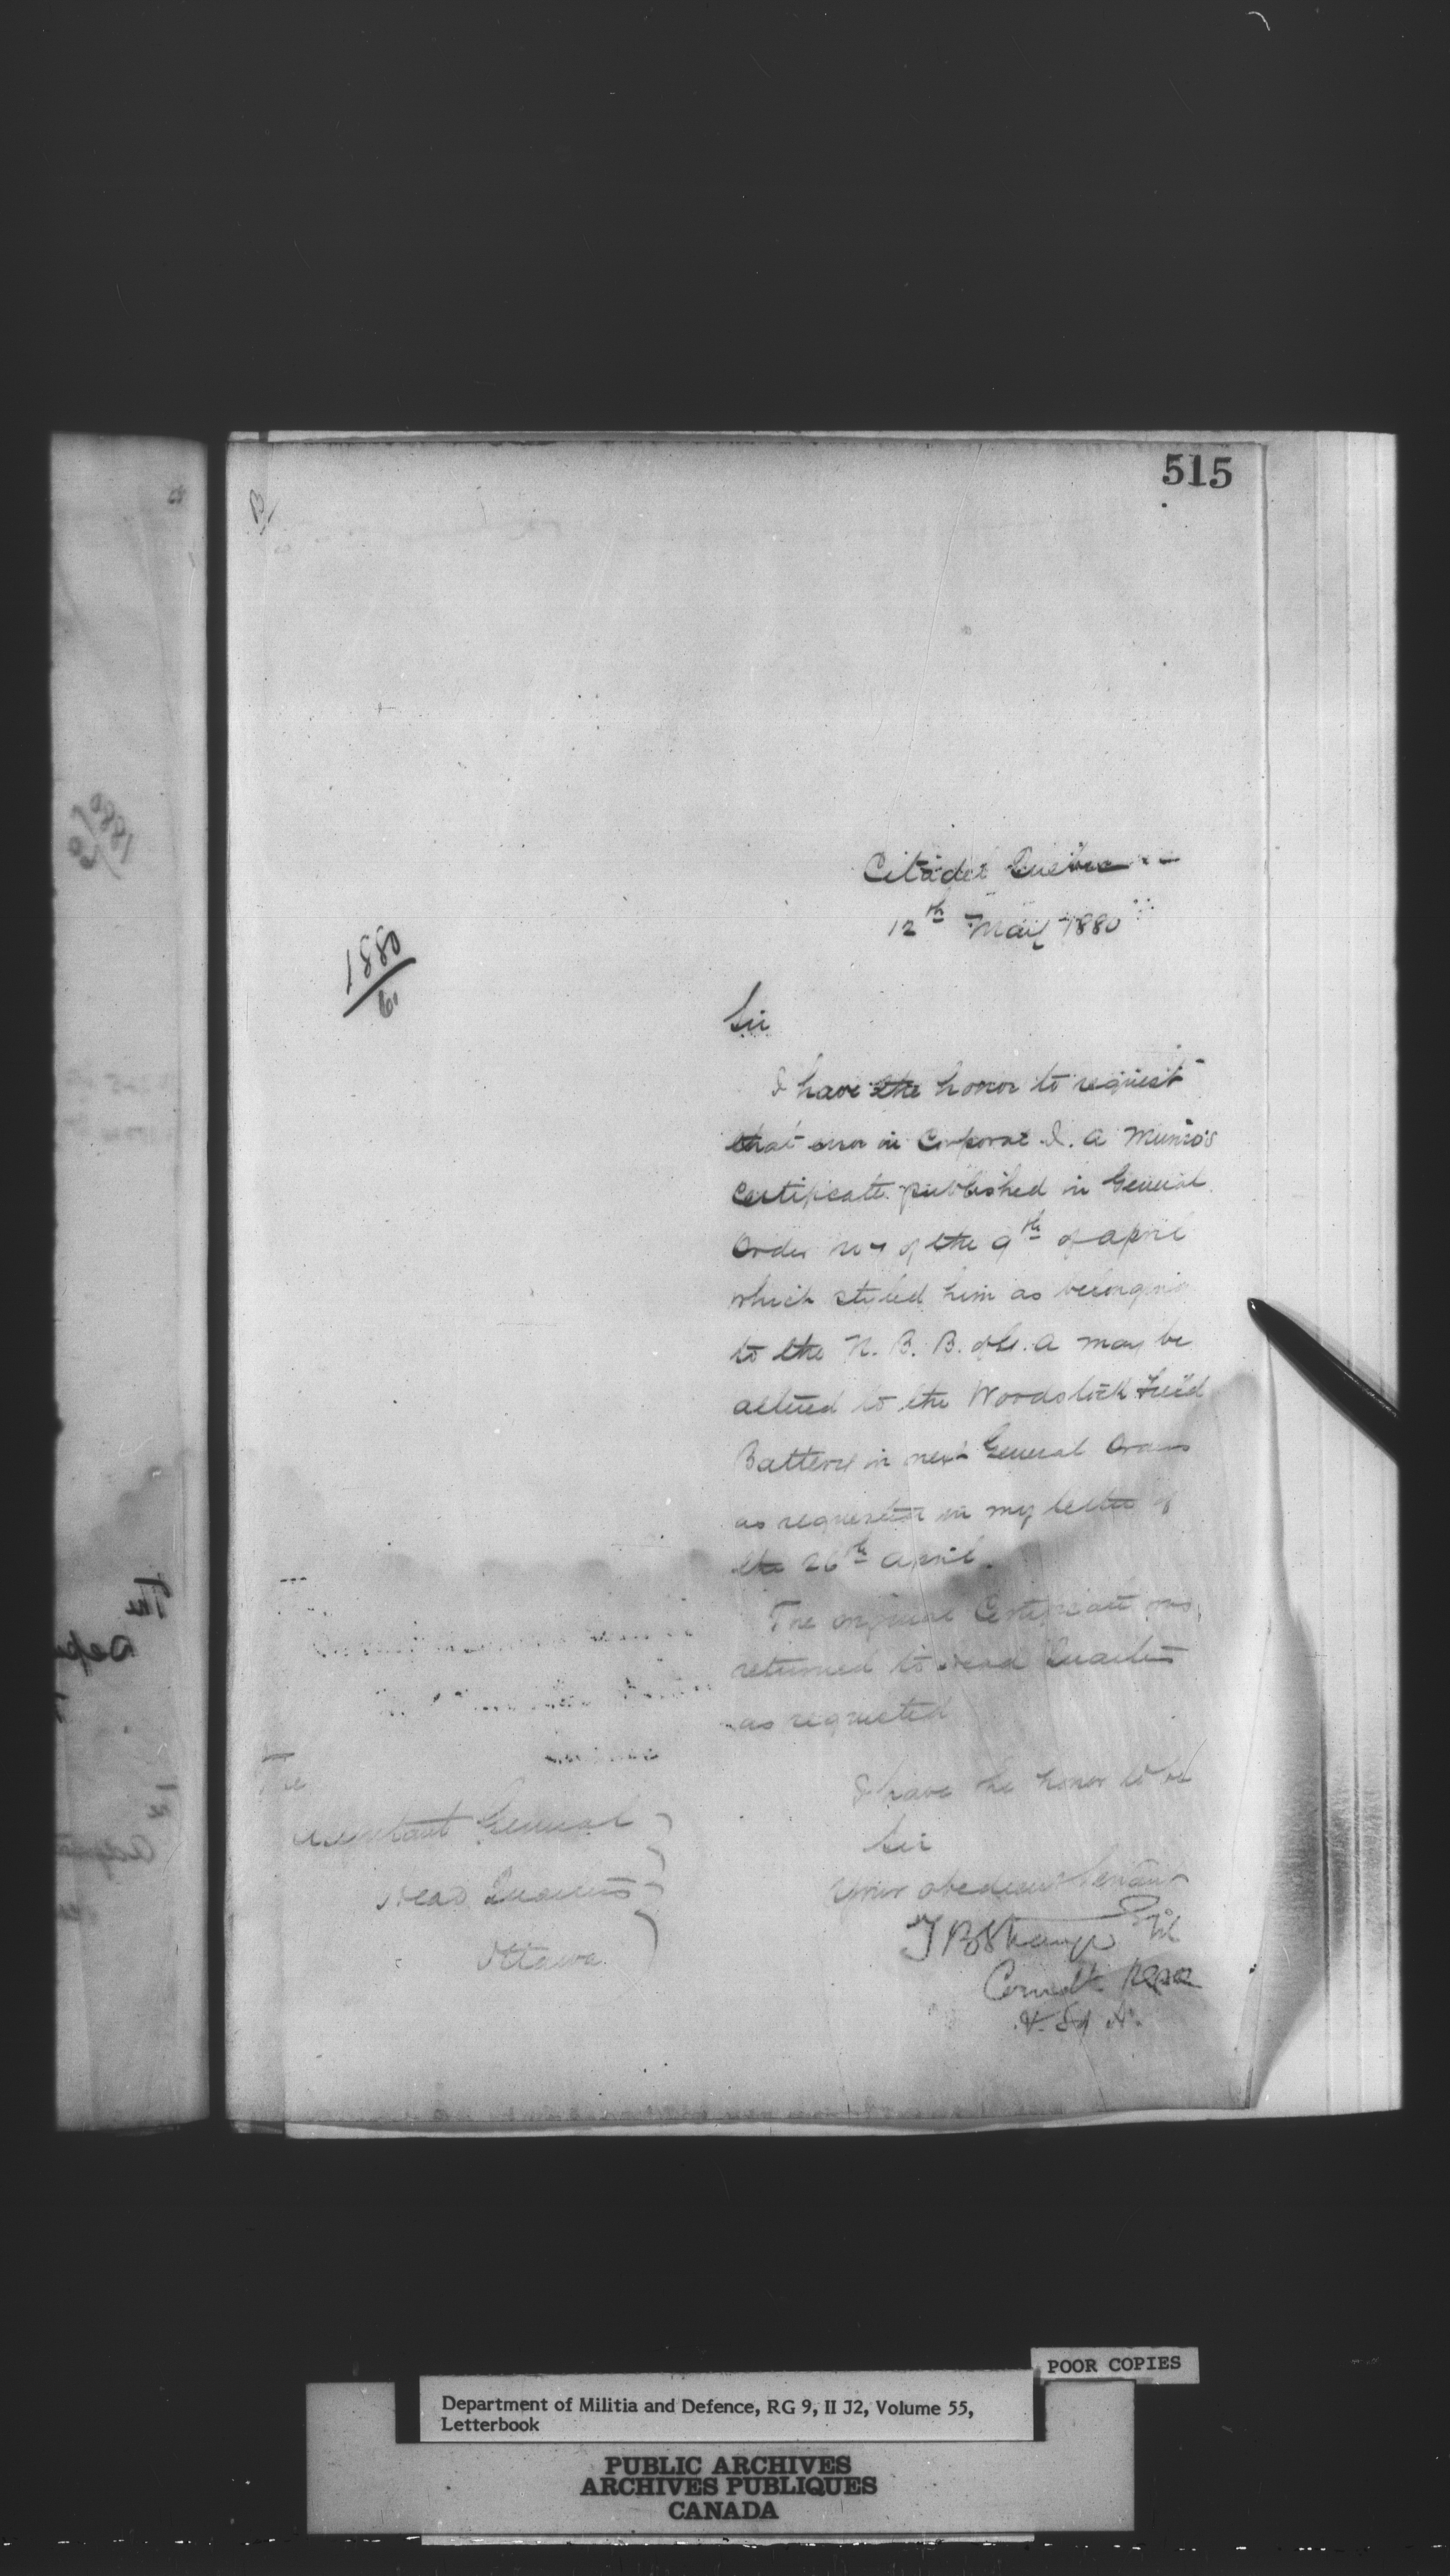 515
B
Citadel Quebec
12th May 1880
1880
Sir
I have the honor to request
that error in Corporal I. A Munro's
Certificate published in General
Order of the 9th of April
which styled him as belonging
to the N. B. B. of G. A may be
altered to the Woodstock Field
Battery in next General Orders
as requested in my letter of
the 26th April.
The original Certificate was
returned to Head Quarters
as requested
I have the honor to be
Sir
Your obedient Servant
T B Strange
Comdt
The
Adjutant General
Head Quarters
Ottawa
POOR COPIES
Department of Militia and Defence, RG 9, II J2, Volume 55,
Letterbook
PUBLIC ARCHIVES
ARCHIVES PUBLIQUES
CANADA